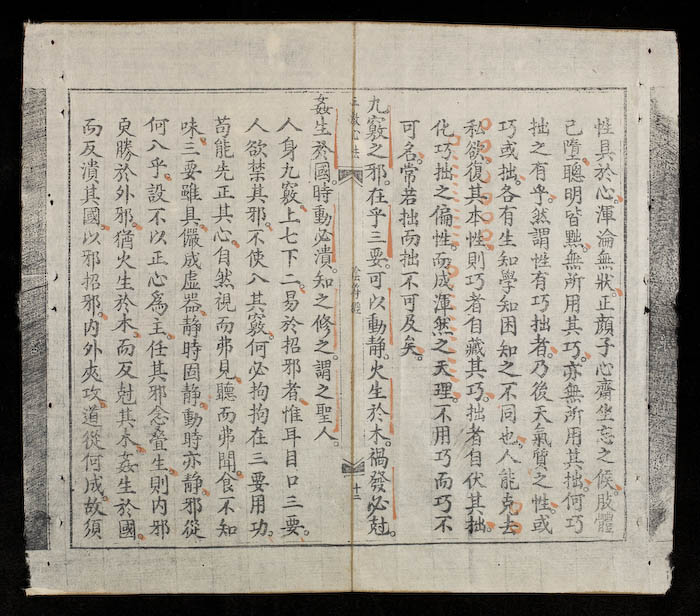 性具於心。渾淪無狀。正顏子心齋坐忘之候。肢體
已墮。聰明皆黜。無所用其巧。亦無所用其拙。何巧
拙之有乎。然謂性有巧拙者。乃後天氣質之性。或
巧或拙。各有生知學知困知之不同也。人能克去
私欲。復其本性。則巧者自藏其巧。拙者自伏其拙。
化巧拙之偏性。而成渾然之天理。不用巧而巧不
可名。常若拙而拙不可及矣。
九竅之邪。在乎三要。可以動靜。火生於木。禍發必尅。
陰符經
十二
姦生於國。時動必潰。知之修之。謂之聖人。
人身九竅。上七下二。易於招邪者。惟耳目口三要。
人欲禁其邪。不使入其竅。何必拘拘在三要用功。
苟能先正其心。自然視而弗見。聽而弗聞。食不知
味。三要雖具。儼成虛器。靜時固靜。動時亦靜。邪從
何入乎。設不以正心為主。任其邪念疊生。則內邪
更勝於外邪。猶火生於木。而反尅其木。姦生於國。
而反潰其國。以邪招邪。內外夾攻。道從何成。故須